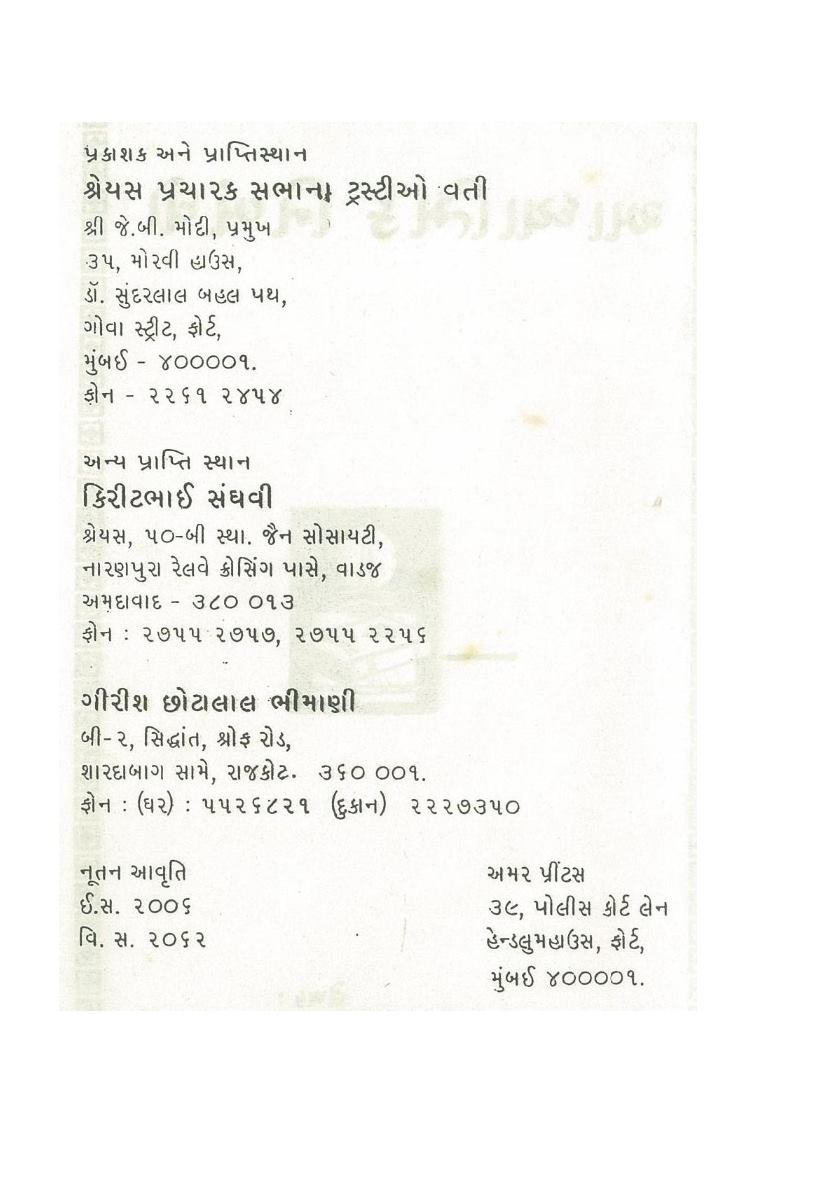 પ્રકાશક અને પ્રાપ્તિસ્થાન
શ્રેયસ પ્રચારક સભાના ટ્રસ્ટીઓ વતી
શ્રી જે.બી. મોદી, પ્રમુખ
૩૫, મોરવી હાઉસ,
ડૉ. સુંદરલાલ બહલ પથ,
ગોવા સ્ટ્રીટ, ફોર્ટ,
મુંબઈ - ૪૦૦૦૦૧.
ફોન - ૨૨૬૧ ૨૪૫૪
અન્ય પ્રાપ્તિ સ્થાન
કિરીટભાઈ સંઘવી
શ્રેયસ, ૫૦-બી સ્થા. જૈન સોસાયટી,
નારણપુરા રેલવે ક્રોસિંગ પાસે, વાડજ
અમદાવાદ - ૩૮૦ ૦૧૩
ફોન : ૨૭૫૫ ૨૭૫૭, ૨૭૫૫ ૨૨૫૬
ગીરીશ છોટાલાલ ભીમાણી
બી-૨, સિદ્ધાંત, શ્રોફ રોડ,
શારદાબાગ સામે, રાજકોટ. ૩૬૦ ૦૦૧.
ફોન : (ઘર) : ૫૫૨૬૮૨૧ (દુકાન) ૨૨૨૭૩૫૦
નૂતન આવૃતિ
ઈ.સ. ૨૦૦૬
વિ. સ. ૨૦૬૨
અમર પ્રીંટસ
૩૯, પોલીસ કોર્ટ લેન
હેન્ડલુમહાઉસ, ફોર્ટ,
મુંબઈ ૪૦૦૦૦૧.